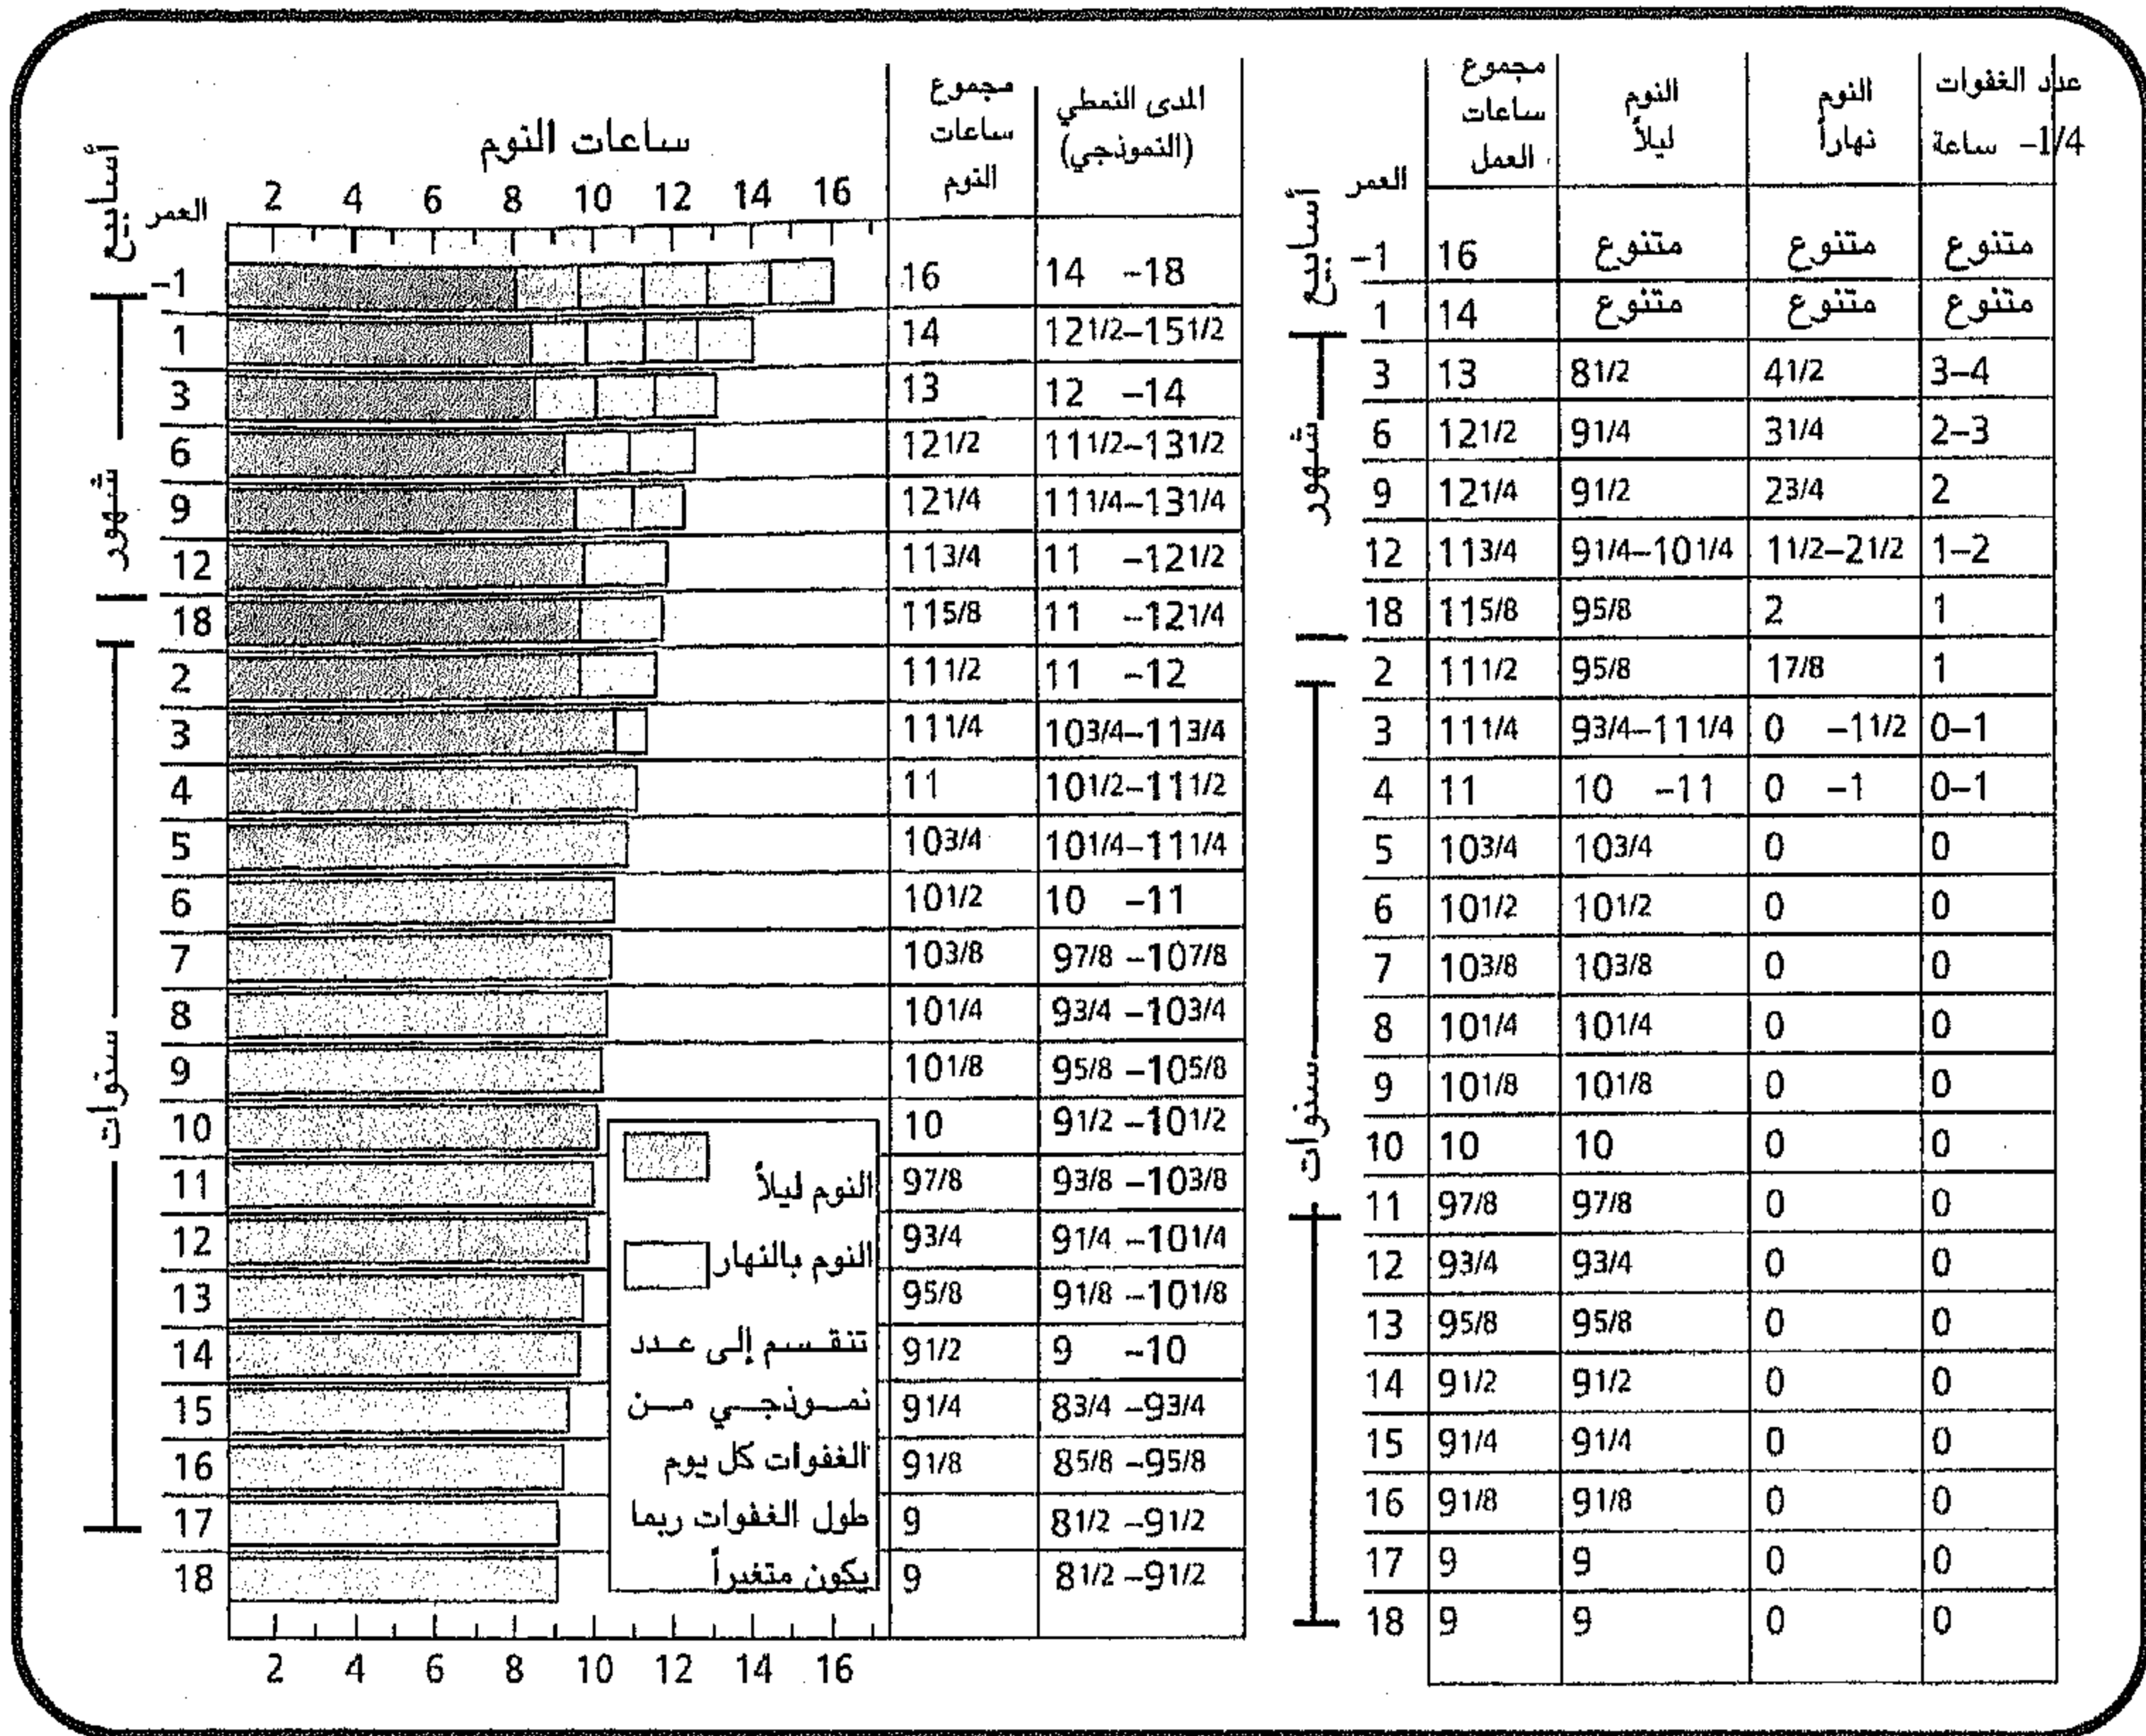 ساعات النوم
أسابيع
العمر
2 4 6 8 10 12 14 16
مجموع ساعات النوم
المدى النمطي (النموذجي)
–1 16 14 –18
1 14 121/2–151/2
شهور
3 13 12 –14
6 121/2 111/2–131/2
9 121/4 111/4–131/4
12 113/4 11 –121/2
18 115/8 11 –121/4
سنوات
2 111/2 11 –12
3 111/4 103/4–113/4
4 11 101/2–111/2
5 103/4 101/4–111/4
6 101/2 10 –11
7 103/8 97/8 –107/8
8 101/4 93/4 –103/4
9 101/8 95/8 –105/8
10 10 91/2 –101/2
11 97/8 93/8 –103/8
12 93/4 91/4 –101/4
13 95/8 91/8 –101/8
14 91/2 9 –10
15 91/4 83/4 –93/4
16 91/8 85/8 –95/8
17 9 81/2 –91/2
18 9 81/2 –91/2
2 4 6 8 10 12 14 16
النوم ليلاً
النوم بالنهار
تنقسم إلى عدد
نموذجي من
الغفوات كل يوم
طول الغفوات ربما
يكون متغيراً
أسابيع
العمر
مجموع ساعات العمل
النوم ليلاً
النوم نهاراً
عدد الغفوات
–1/4 ساعة
–1 16 متنوع متنوع متنوع
1 14 متنوع متنوع متنوع
شهور
3 13 81/2 41/2 3–4
6 121/2 91/4 31/4 2–3
9 121/4 91/2 23/4 2
12 113/4 91/4–101/4 11/2–21/2 1–2
18 115/8 95/8 2 1
سنوات
2 111/2 95/8 17/8 1
3 111/4 93/4–111/4 0 –11/2 0–1
4 11 10 –11 0 –1 0–1
5 103/4 103/4 0 0
6 101/2 101/2 0 0
7 103/8 103/8 0 0
8 101/4 101/4 0 0
9 101/8 101/8 0 0
10 10 10 0 0
11 97/8 97/8 0 0
12 93/4 93/4 0 0
13 95/8 95/8 0 0
14 91/2 91/2 0 0
15 91/4 91/4 0 0
16 91/8 91/8 0 0
17 9 9 0 0
18 9 9 0 0